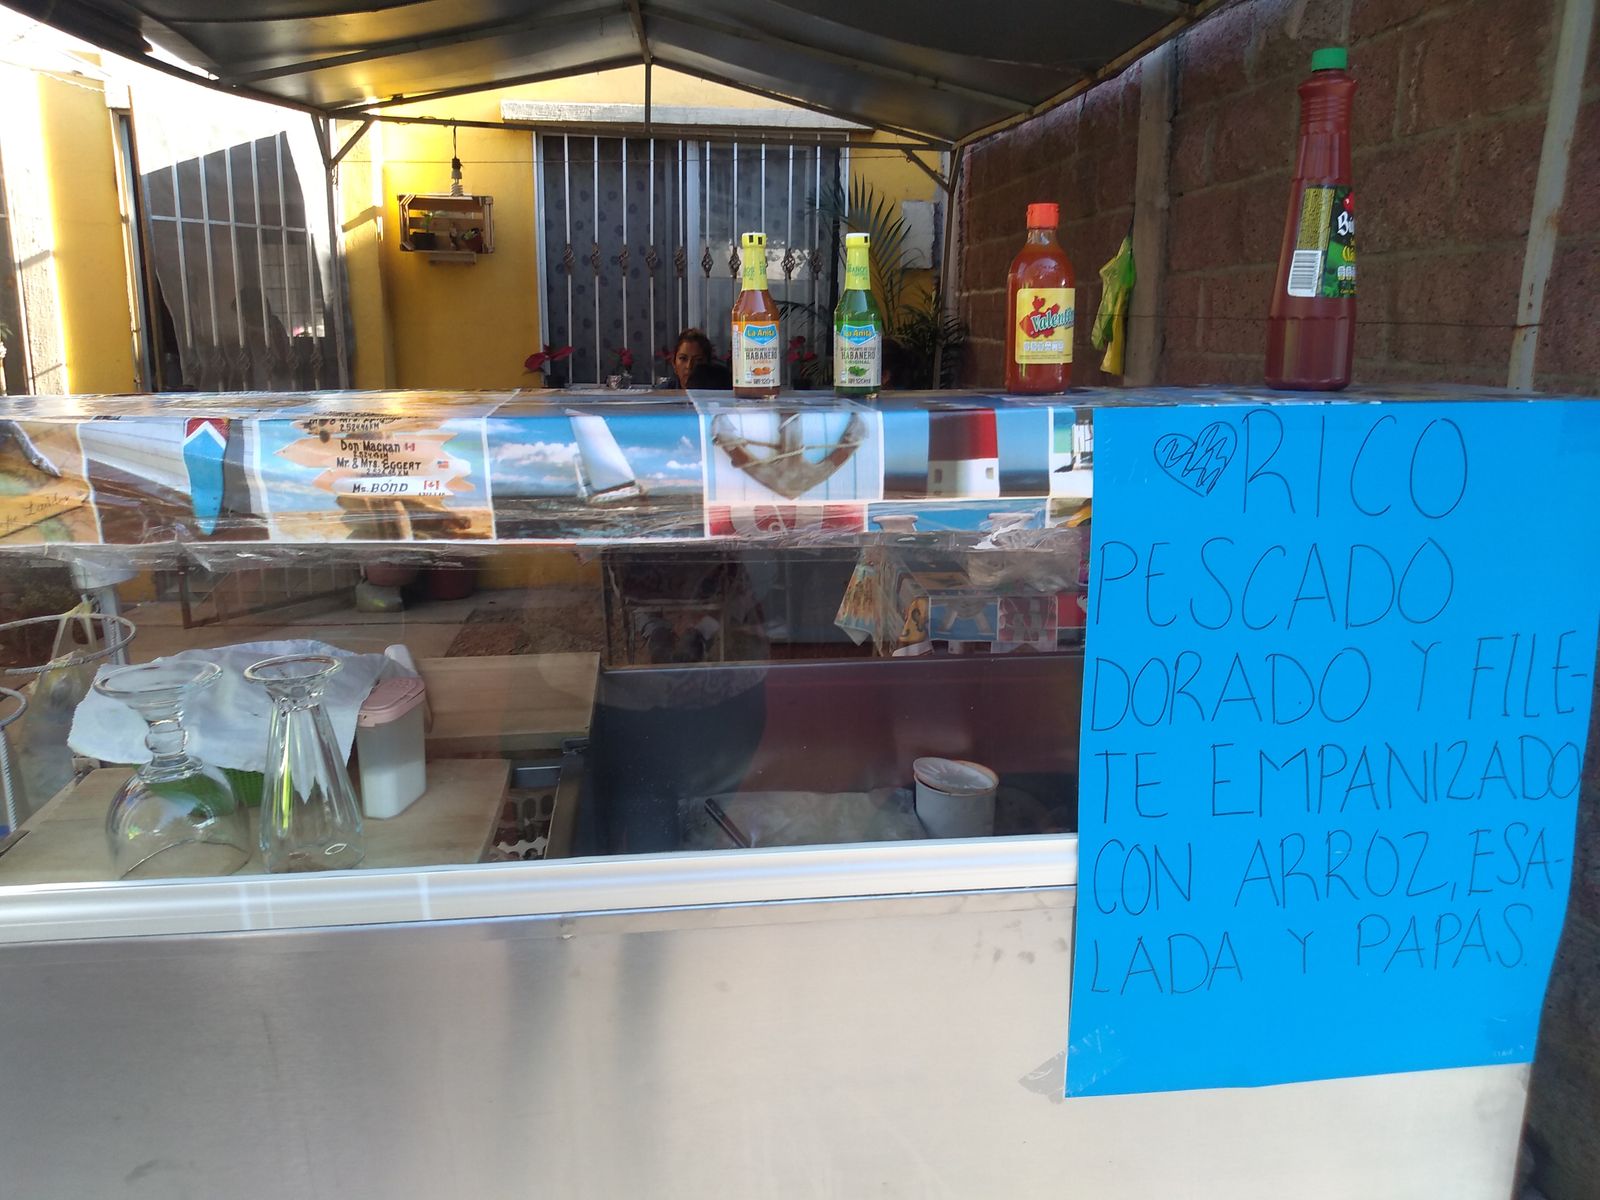 La Anita
HABANERO
La Anita
HABANERO
ORIGINAL
Don Mackan
Mr. & Mrs. EGGERT
Ms. BOND
RICO
PESCADO
DORADO Y FILE-
TE EMPANIZADO
CON ARROZ, ESA-
LADA Y PAPAS.